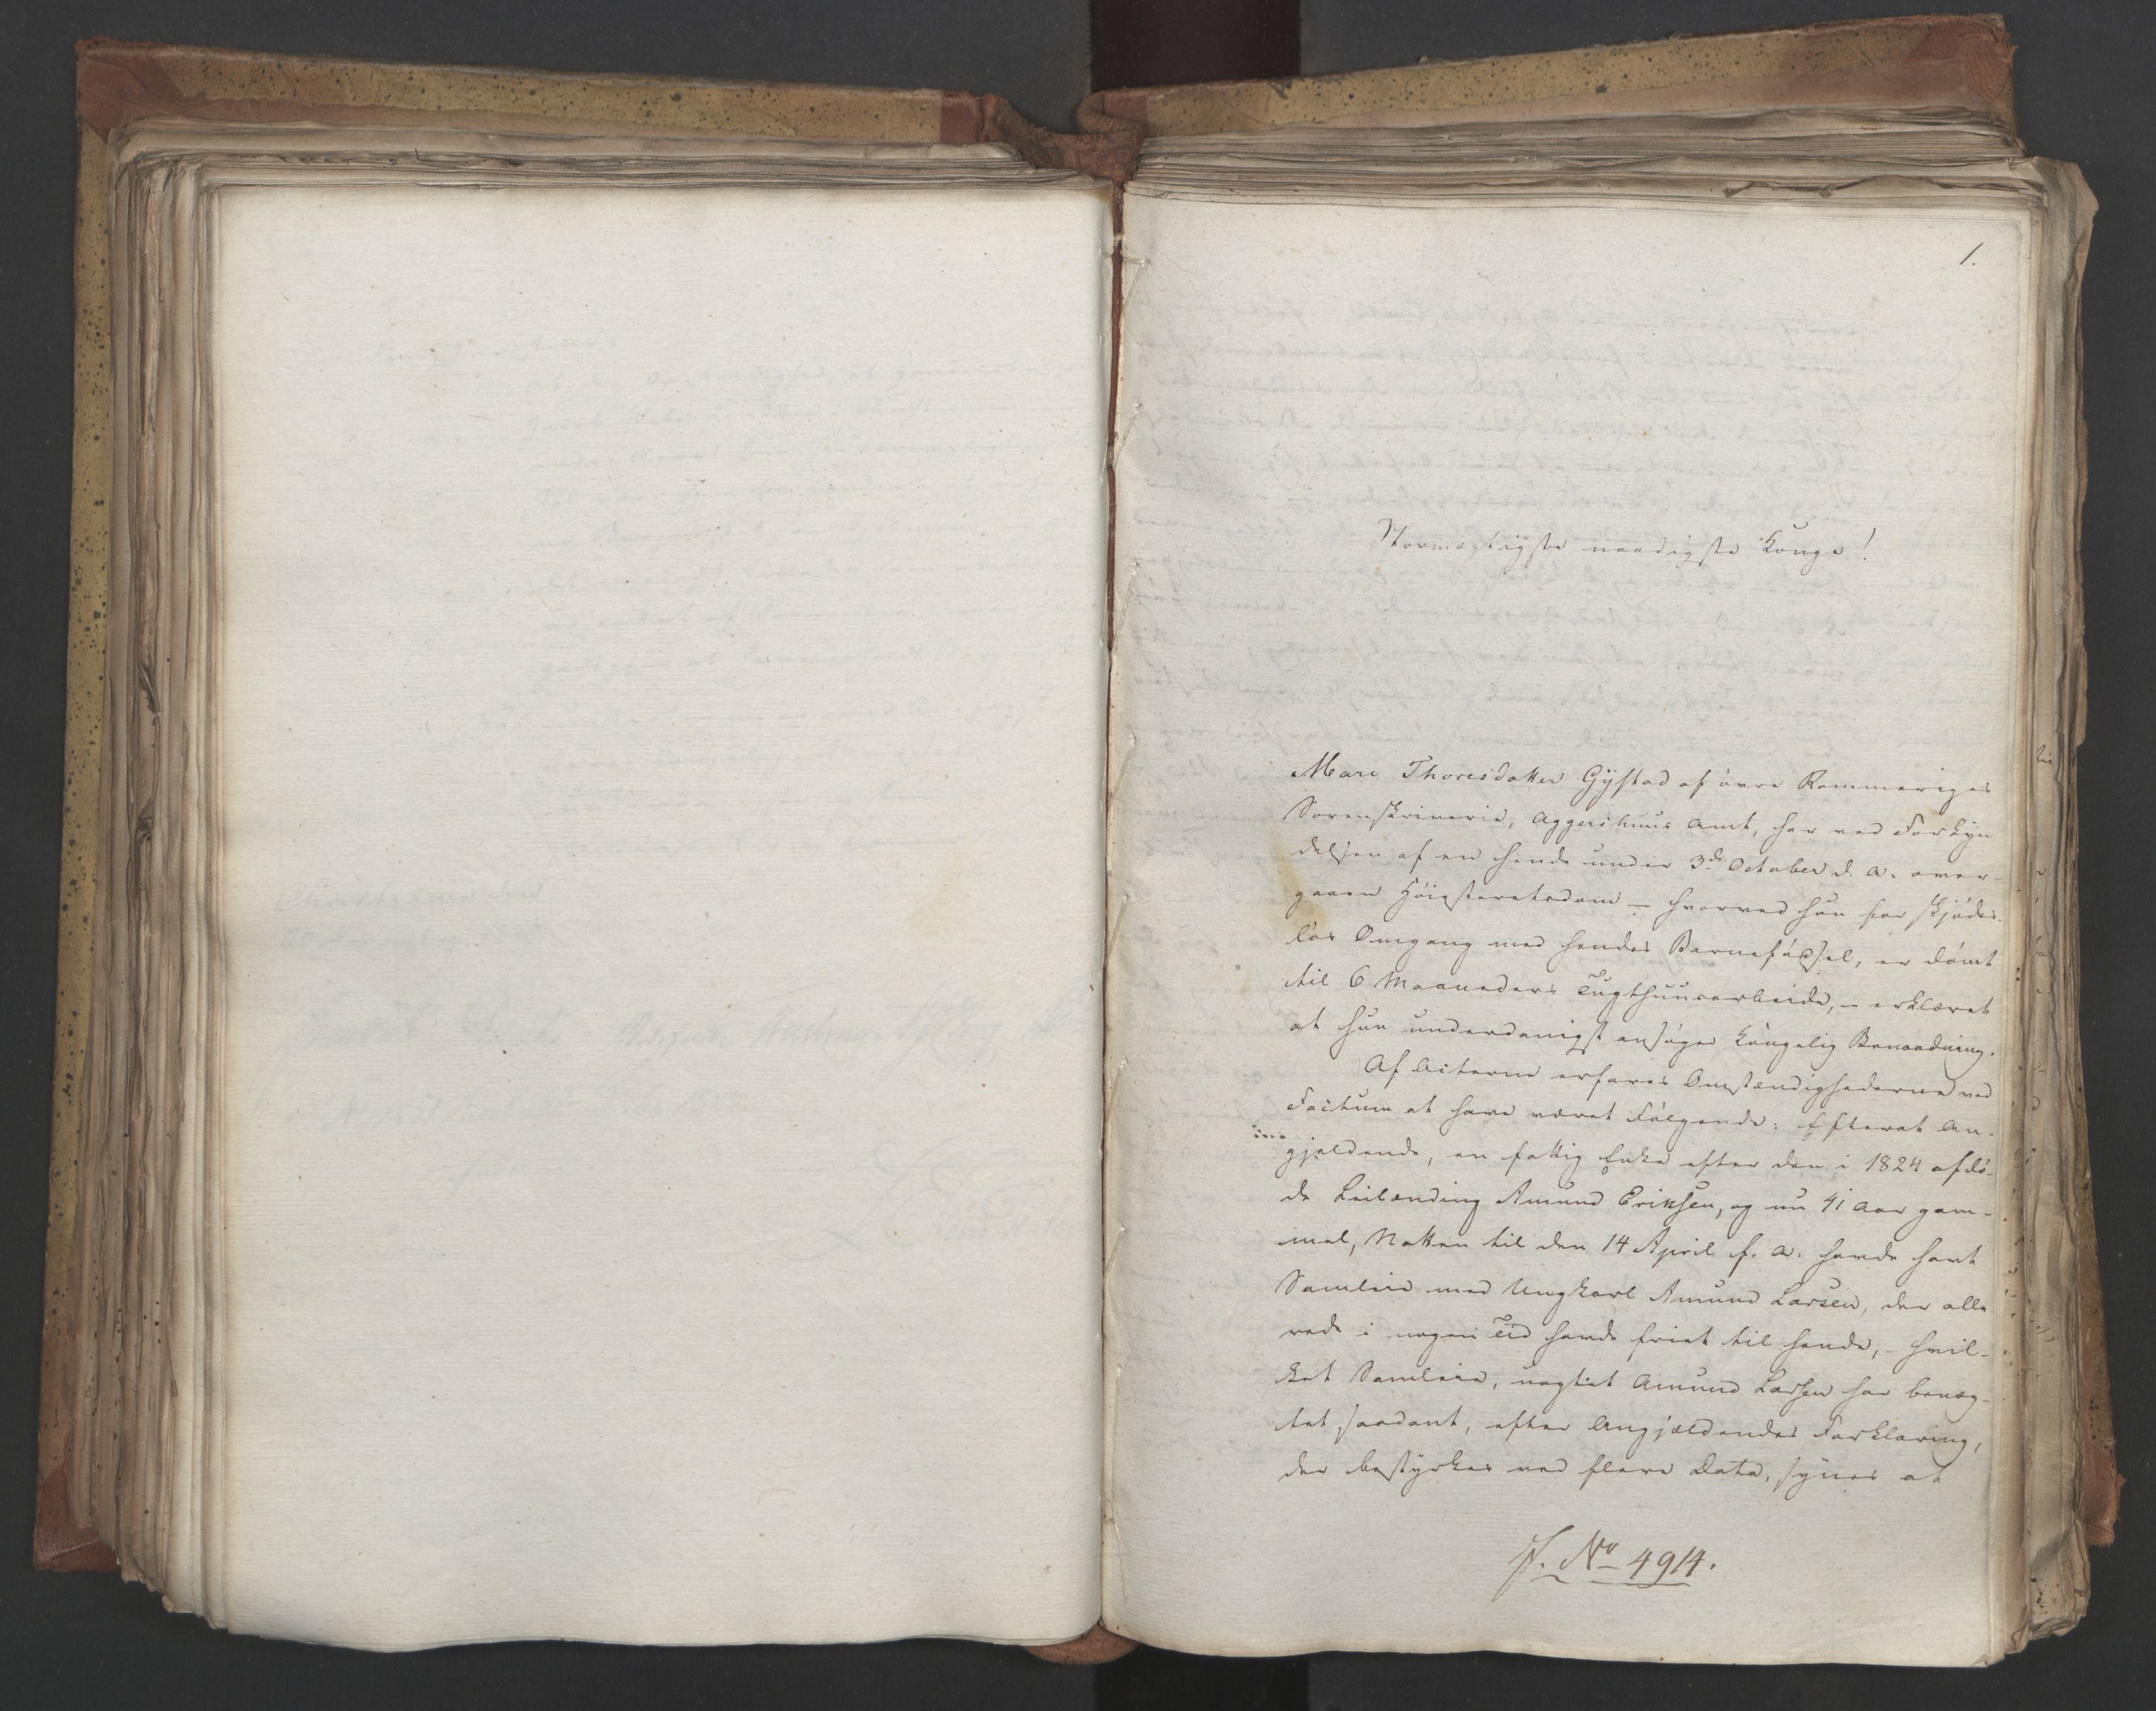 1.
Stormægtigste naadigste Konge!
Mari Thoresdatter Gystad af øvre Rommeriges
Sorenskriverie, Aggershuus Amt, har ved Forkyn
delsen af en hende under 3de October d. A. over-
gaaen Høiesteretsdom – hvorved hun for skjødes-
løs Omgang med hendes Barnefødsel, er dømt
til 6 Maaneders Tugthuusarbeide, – erklæret
at hun underdanigst ansøger kongelig Benaadning.
Af Acterne erfares Omstændighederne ved
Factum at have været Følgende: Efterat An-
gjeldende, en fattig Enke efter den i 1824 afdø-
de Leilænding Amund Eriksen, og nu 41 Aar gam-
mel, Natten til den 14 April f. A. havde havt
Samleie med Ungkarl Amund Larsen, der alle
rede i nogen Tid havde friet til hende, – hvil-
ket Samleie, uagtet Amund Larsen har benæg-
tet saadant, efter Angjældendes Forklaring,
der bestyrkes ved flere Data, synes at
J. No 4914.